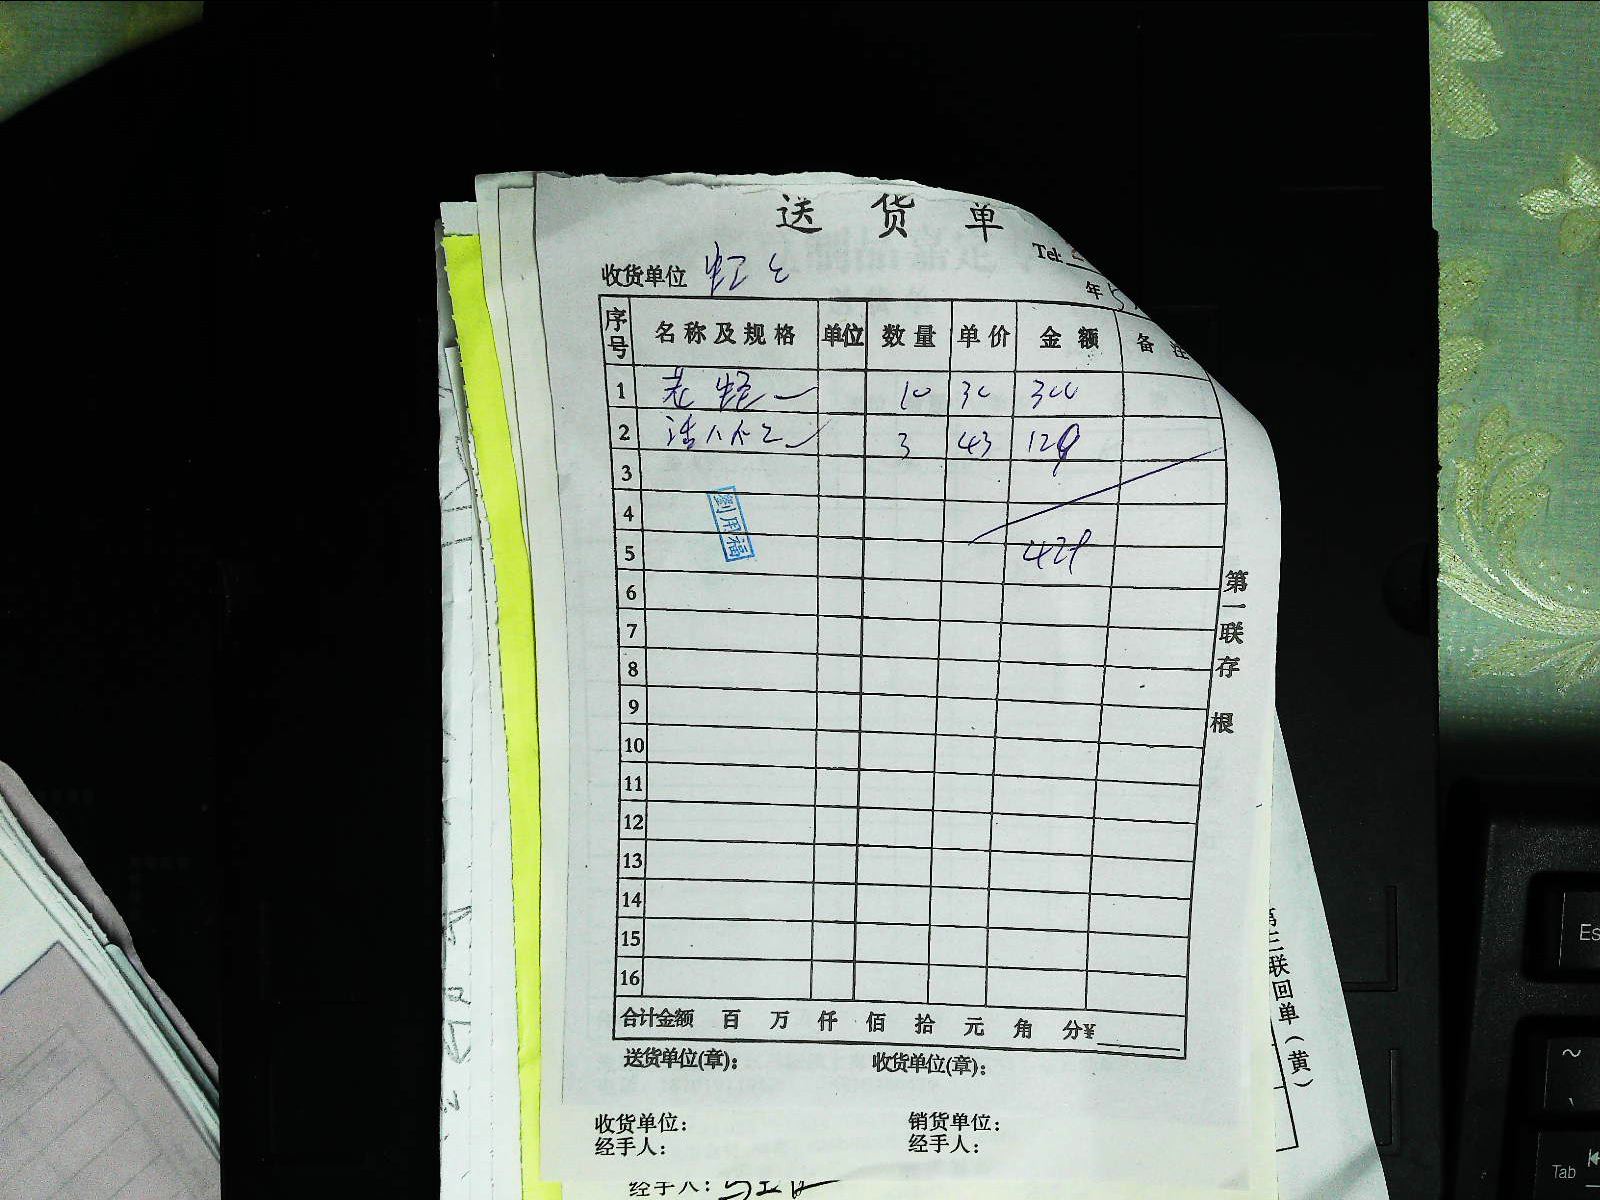 送 货 单
Tel:
收货单位
年 5
序号 名称及规格 单位 数量 单价 金额 备注
1 10 30 300
2 3 43 129
3
4
劉用福
5 429
6
7
8
9
10
11
12
13
14
15
16
合计金额 百 万 仟 佰 拾 元 角 分¥
送货单位(章): 收货单位(章):
收货单位: 销货单位:
经手人: 经手人:
第一联存 根
第三联回单(黄)
经手人:
Es
~
Tab